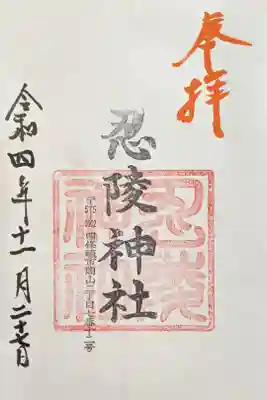 奉拝
忍陵神社
〒575-0002 四條畷市岡山二丁目七番十二号
令和四年十一月二十七日
忍陵
神社